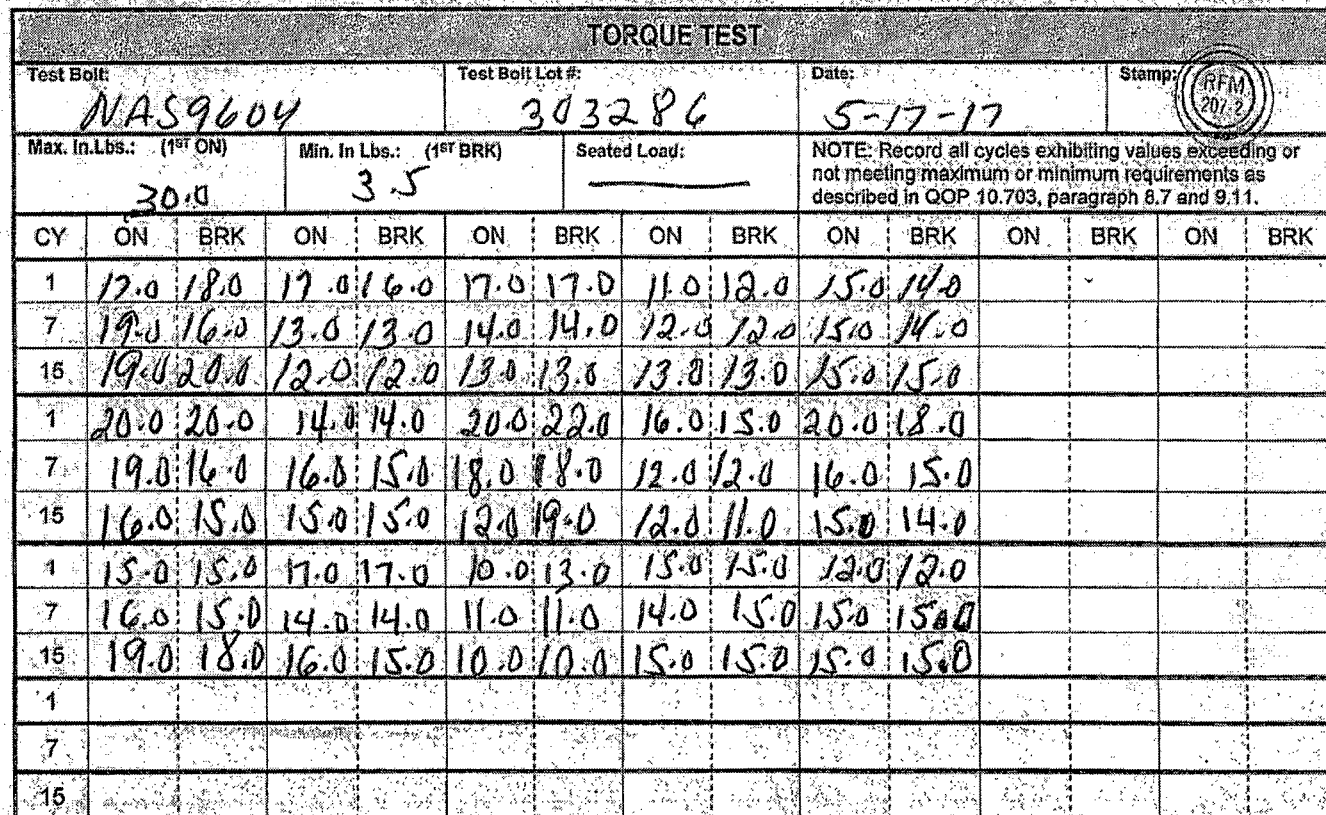 TORQUE TEST
Test Bolt: Test Bolt Lot #: Date: Stamp:
NAS9604 303286 5-17-17 RFM 207-2
Max. In.Lbs.: (1ST ON) Min. In Lbs.: (1ST BRK) Seated Load: NOTE: Record all cycles exhibiting values exceeding or
not meeting maximum or minimum requirements as
30.0 3.5 — described in QOP 10.703, paragraph 8.7 and 9.11.
CY ON BRK ON BRK ON BRK ON BRK ON BRK ON BRK ON BRK
1 17.0 18.0 17.0 16.0 17.0 17.0 11.0 12.0 15.0 14.0
7 19.0 16.0 13.0 13.0 14.0 14.0 12.0 12.0 15.0 14.0
15 19.0 20.0 12.0 12.0 13.0 13.0 13.0 13.0 15.0 15.0
1 20.0 20.0 14.0 14.0 20.0 22.0 16.0 15.0 20.0 18.0
7 19.0 16.0 16.0 15.0 18.0 18.0 12.0 12.0 16.0 15.0
15 16.0 15.0 15.0 15.0 12.0 19.0 12.0 11.0 15.0 14.0
1 15.0 15.0 17.0 17.0 10.0 13.0 15.0 15.0 12.0 12.0
7 16.0 15.0 14.0 14.0 11.0 11.0 14.0 15.0 15.0 15.0
15 19.0 18.0 16.0 15.0 10.0 10.0 15.0 15.0 15.0 15.0
1
7
15